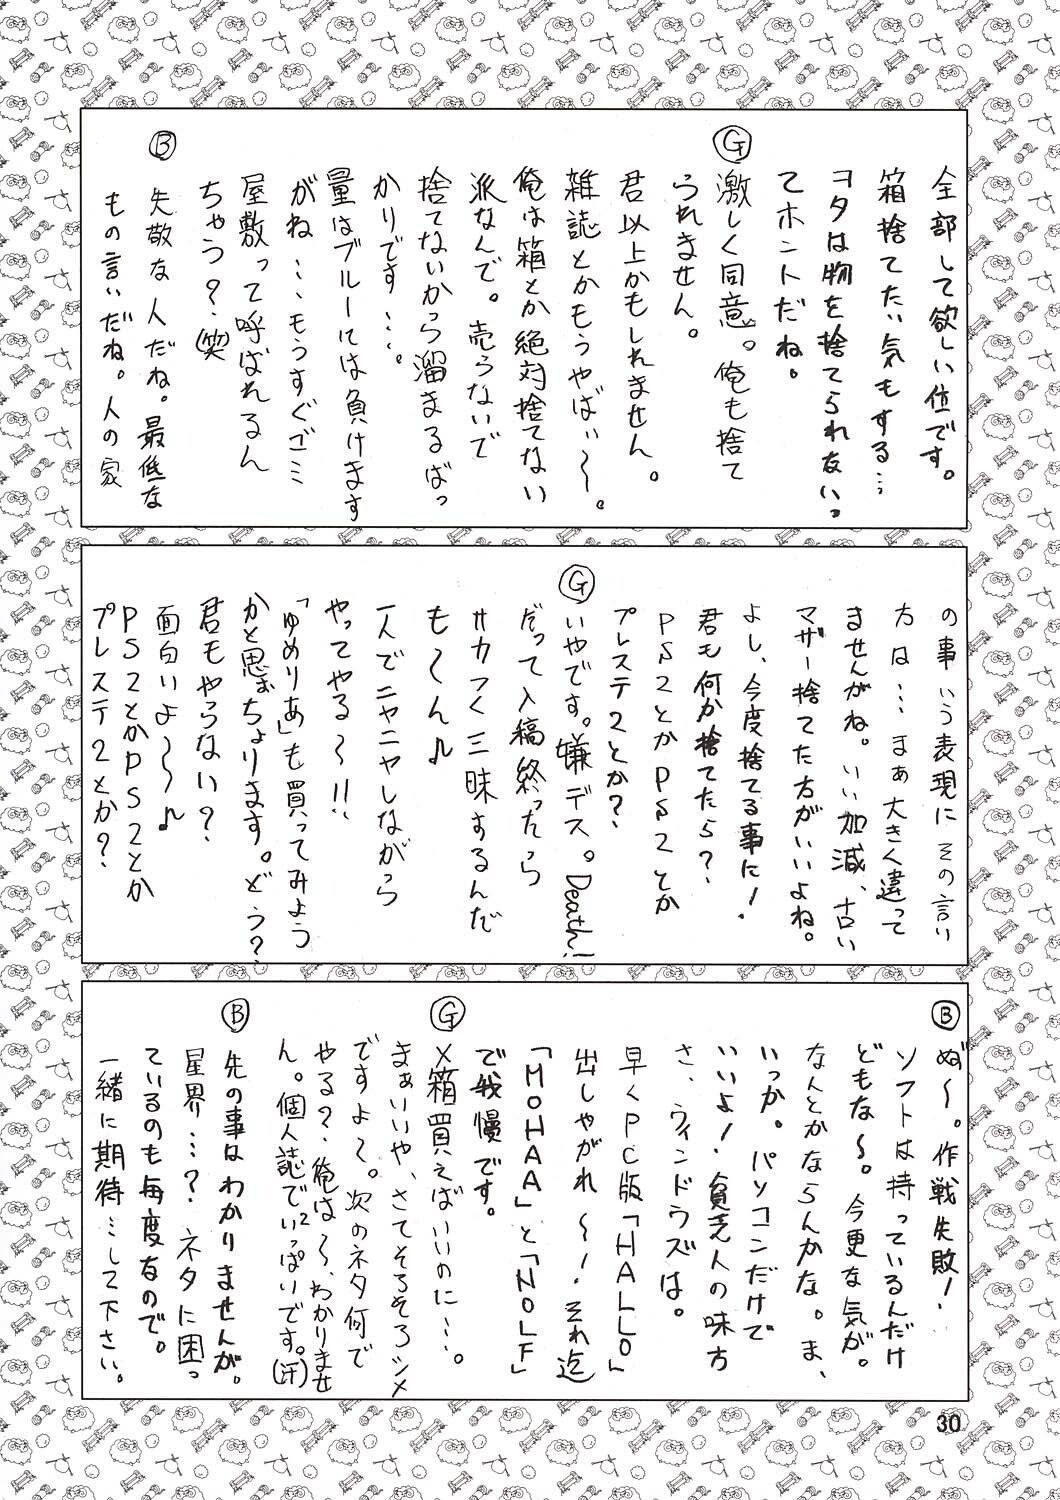 全部して欲しい位です。
箱捨てたい気もする…
ヲタは物を捨てられないっ
てホントだね。
Ⓖ 激しく同意。俺も捨て
られません。
君以上かもしれません。
雑誌とかもうやばい〜。
俺は箱とか絶対捨てない
派なんで。売らないで
捨てないから溜まるばっ
かりです…。
量はブルーには負けます
がね…もうすぐゴミ
屋敷って呼ばれるん
ちゃう？(笑)
Ⓑ 失敬な人だね。最低な
もの言いだね。人の家
の事いう表現にその言い
方は…まぁ大きく違って
ませんがね。いい加減、古い
マザー捨てた方がいいよね。
よし、今度捨てる事に！
君も何か捨てたら？
PS2とかPS2とか
プレステ2とか？
Ⓖ いやです。嫌デス。Death!
だって入稿終ったら
サカつく三昧するんだ
も〜ん♪
一人でニヤニヤしながら
やってやる〜!!
「ゆめりあ」も買ってみよう
かと思おちょります。どう？
君もやらない？
面白いよ〜♪
PS2とかPS2とか
プレステ2とか？
Ⓑ ぬ〜。作戦失敗！
ソフトは持っているんだけ
どもな〜。今更な気が。
なんとかならんかな。ま、
いっか。パソコンだけで
いいよ！貧乏人の味方
さ、ウィンドウズは。
早くPC版「HALLO」
出しやがれ〜！それ迄
「MOHAA」と「NOLF」
で我慢です。
Ⓖ ×箱買えばいいのに…。
まぁいいや、さてそろそろシメ
ですよ〜。次のネタ何で
やる？俺は〜、わかりませ
ん。個人誌でいっぱいです。(汗)
Ⓑ 先の事はわかりませんが。
星界…？ネタに困っ
ているのも毎度なので。
一緒に期待…して下さい。
30